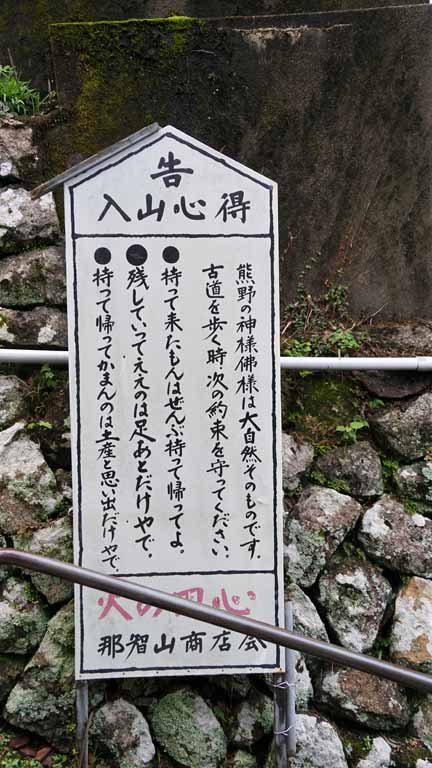 告
入山心得
熊野の神様佛様は大自然そのものです.
古道を歩く時.次の約束を守ってください.
●持って来たもんはぜんぶ持って帰ってよ。
●残していってええのは足あとだけやで。
●持って帰ってかまんのは土産と思い出だけやで.
火の用心
那智山商店会